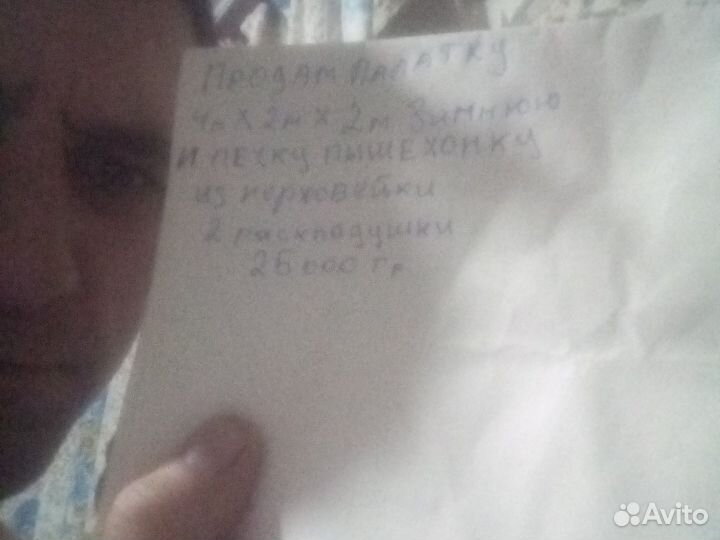 ПРОДАМ ПАЛАТКУ
4м X 2м X 2м Зимнюю
И ПЕЧКУ ПЫШЕХОНКУ
из нержовейки
2 раскладушки
26000 Гр
Avito